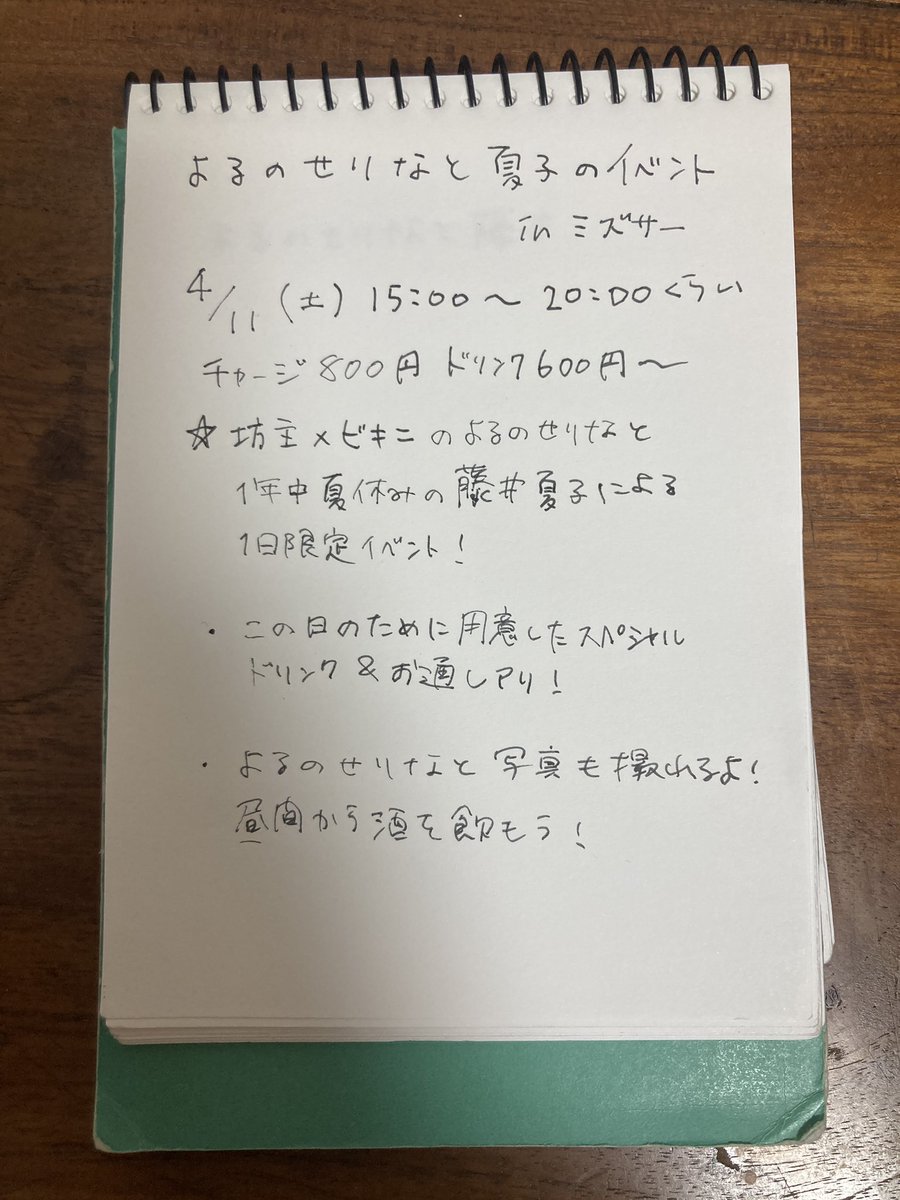 よるのせりなと夏子のイベント
in ミズサー
4/11(土) 15:00〜20:00くらい
チャージ800円 ドリンク600円〜
☆坊主×ビキニのよるのせりなと
1年中夏休みの藤井夏子による
1日限定イベント!
・この日のために用意したスペシャル
ドリンク&お通しアリ!
・よるのせりなと写真も撮れるよ!
昼間から酒を飲もう!